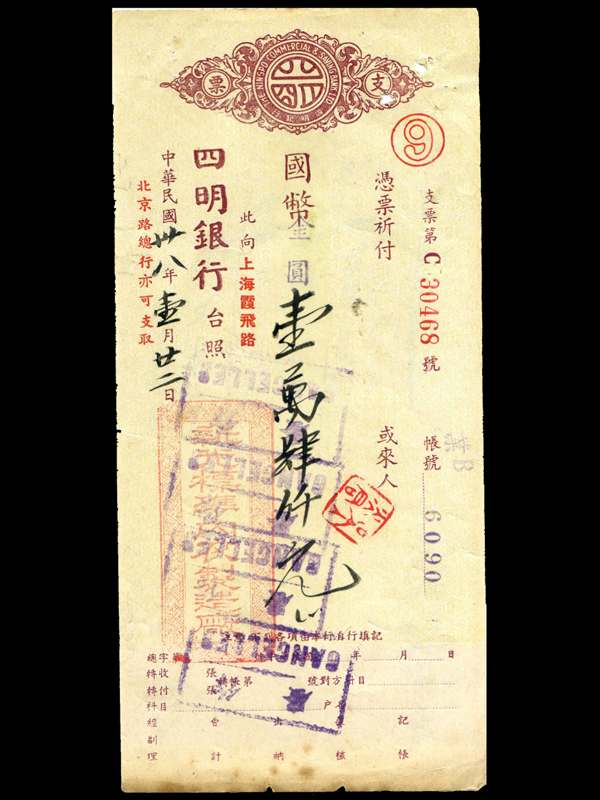 支票
NINGPO COMMERCIAL & SAVINGS BANK LTD
支票第 C 30468 號
帳號 6090
9
憑票祈付
或來人
國幣金圓壹萬肆仟元
此向上海霞飛路
四明銀行 台照
中華民國卅八年壹月廿二日
北京路總行亦可支取
CANCELLED
CANCELLED
CANCELLED
CANCELLED
各項由本行自行填記
年 月 日
總字
轉收 張 轉帳第 號對方科目
轉付 張
科目 戶名
經副理 會計 出納 覆核 記帳